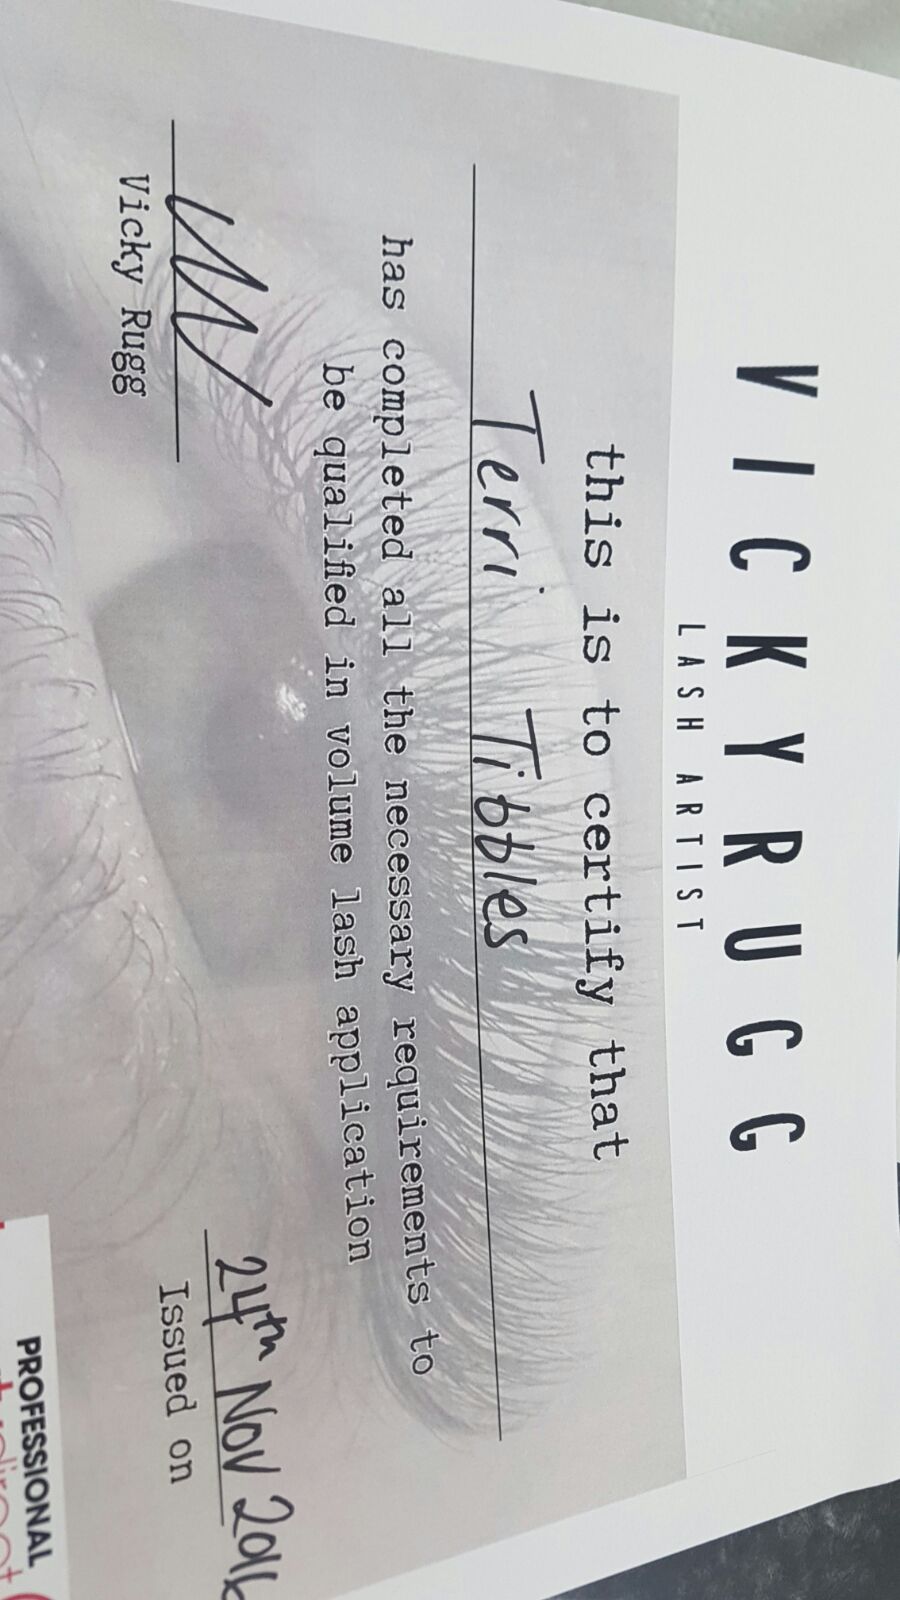 VICKYRUGG
LASH ARTIST
this is to certify that
Terri Tibbles
has completed all the necessary requirements to
be qualified in volume lash application
24th Nov 2016
Issued on
Vicky Rugg
PROFESSIONAL